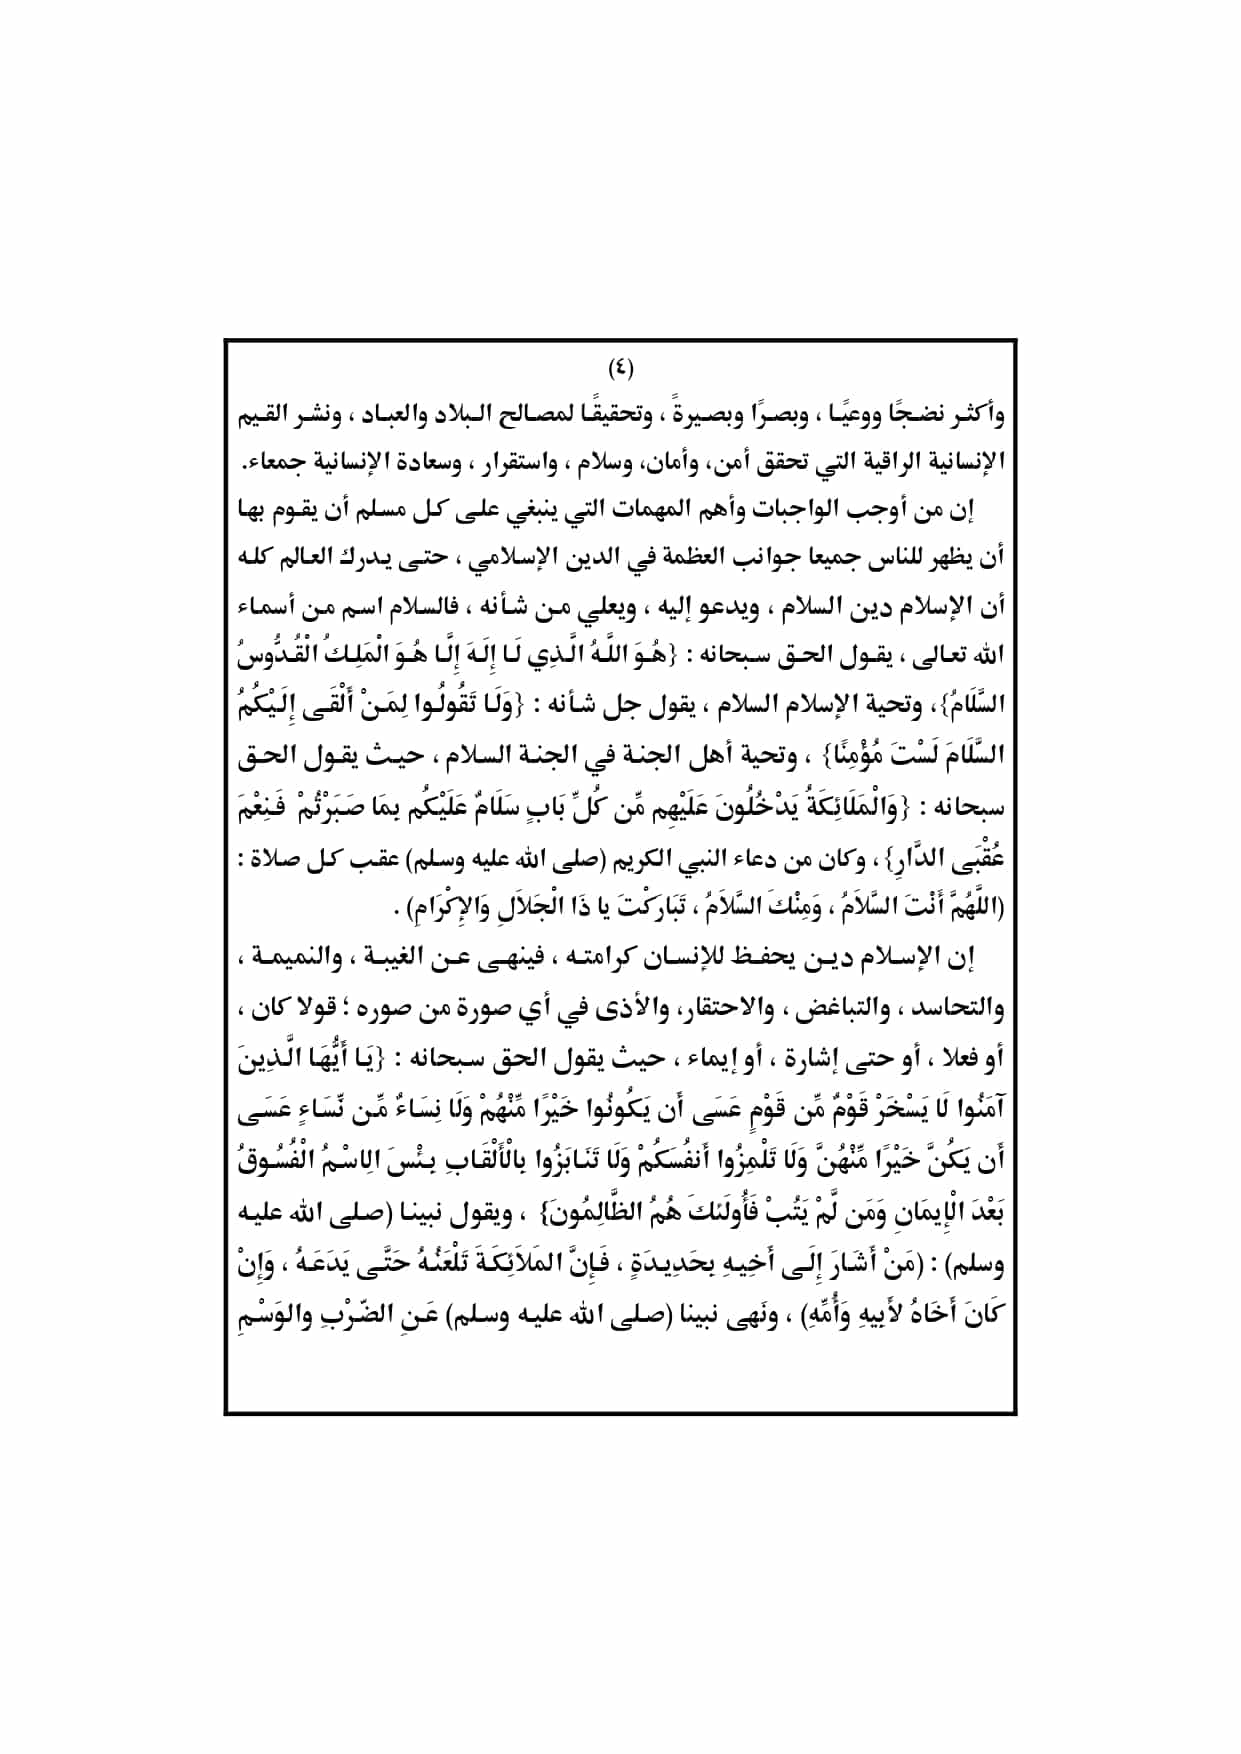 (٤)
وأكثر نضجًا ووعيًا ، وبصرًا وبصيرةً ، وتحقيقًا لمصالح البلاد والعباد ، ونشر القيم
الإنسانية الراقية التي تحقق أمن، وأمان، وسلام ، واستقرار ، وسعادة الإنسانية جمعاء.
إن من أوجب الواجبات وأهم المهمات التي ينبغي على كل مسلم أن يقوم بها
أن يظهر للناس جميعا جوانب العظمة في الدين الإسلامي ، حتى يدرك العالم كله
أن الإسلام دين السلام ، ويدعو إليه ، ويعلي من شأنه ، فالسلام اسم من أسماء
الله تعالى ، يقول الحق سبحانه : {هُوَ اللَّهُ الَّذِي لَا إِلَهَ إِلَّا هُوَ الْمَلِكُ الْقُدُّوسُ
السَّلَامُ}، وتحية الإسلام السلام ، يقول جل شأنه : {وَلَا تَقُولُوا لِمَنْ أَلْقَى إِلَيْكُمُ
السَّلَامَ لَسْتَ مُؤْمِنًا} ، وتحية أهل الجنة في الجنة السلام ، حيث يقول الحق
سبحانه : {وَالْمَلَائِكَةُ يَدْخُلُونَ عَلَيْهِم مِّن كُلِّ بَابٍ سَلَامٌ عَلَيْكُم بِمَا صَبَرْتُمْ فَنِعْمَ
عُقْبَى الدَّارِ}، وكان من دعاء النبي الكريم (صلى الله عليه وسلم) عقب كل صلاة :
(اللَّهُمَّ أَنْتَ السَّلاَمُ ، وَمِنْكَ السَّلاَمُ ، تَبَارَكْتَ يا ذَا الْجَلاَلِ وَالإِكْرَامِ) .
إن الإسلام دين يحفظ للإنسان كرامته ، فينهى عن الغيبة ، والنميمة ،
والتحاسد ، والتباغض ، والاحتقار، والأذى في أي صورة من صوره ؛ قولا كان ،
أو فعلا ، أو حتى إشارة ، أو إيماء ، حيث يقول الحق سبحانه : {يَا أَيُّهَا الَّذِينَ
آمَنُوا لَا يَسْخَرْ قَوْمٌ مِّن قَوْمٍ عَسَى أَن يَكُونُوا خَيْرًا مِّنْهُمْ وَلَا نِسَاءٌ مِّن نِّسَاءٍ عَسَى
أَن يَكُنَّ خَيْرًا مِّنْهُنَّ وَلَا تَلْمِزُوا أَنفُسَكُمْ وَلَا تَنَابَزُوا بِالْأَلْقَابِ بِئْسَ الِاسْمُ الْفُسُوقُ
بَعْدَ الْإِيمَانِ وَمَن لَّمْ يَتُبْ فَأُولَئكَ هُمُ الظَّالِمُونَ} ، ويقول نبينا (صلى الله عليه
وسلم) : (مَنْ أَشَارَ إِلَى أَخِيهِ بِحَدِيدَةٍ ، فَإِنَّ المَلاَئِكَةَ تَلْعَنُهُ حَتَّى يَدَعَهُ ، وَإِنْ
كَانَ أَخَاهُ لأَبِيهِ وَأُمِّهِ) ، ونَهى نبينا (صلى الله عليه وسلم) عَنِ الضّرْبِ والوَسْمِ